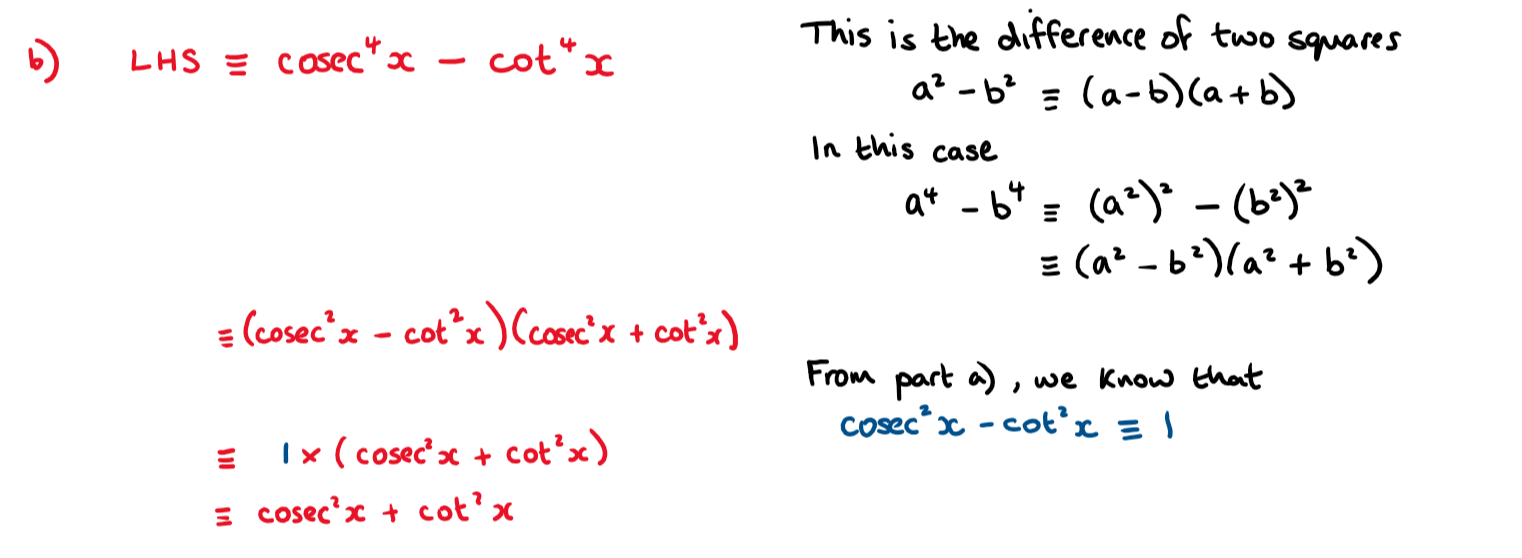 b) LHS ≡ cosec⁴x − cot⁴x
This is the difference of two squares
a² − b² ≡ (a−b)(a+b)
In this case
a⁴ − b⁴ ≡ (a²)² − (b²)²
≡ (a² − b²)(a² + b²)
≡ (cosec²x − cot²x)(cosec²x + cot²x)
From part a), we know that
cosec²x − cot²x ≡ 1
≡ 1 × (cosec²x + cot²x)
≡ cosec²x + cot²x